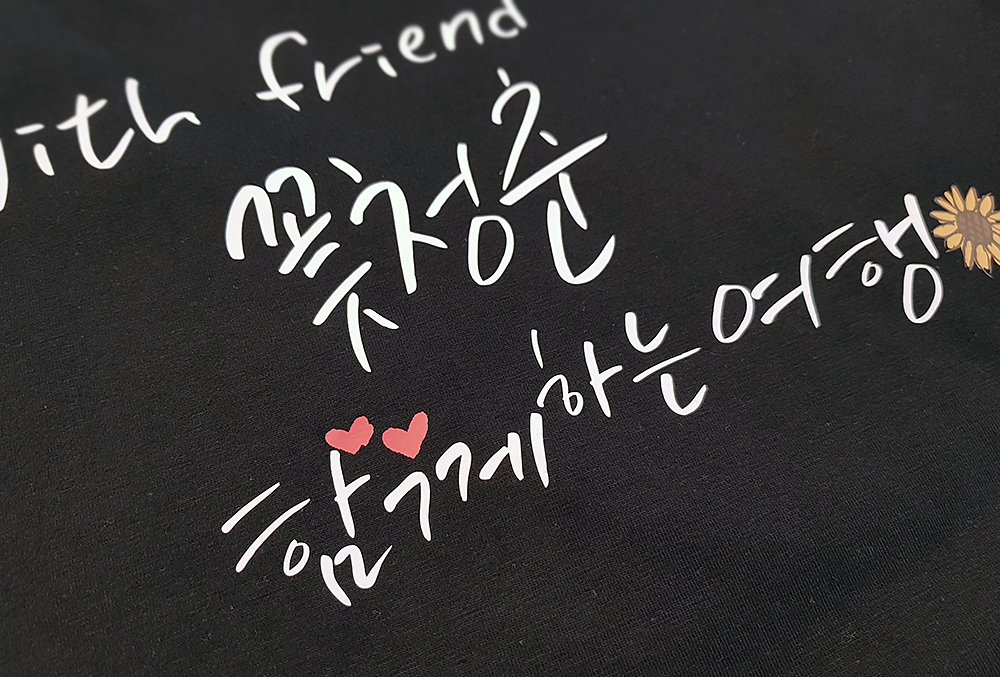 with friend
꽃청춘
함께하는 여행